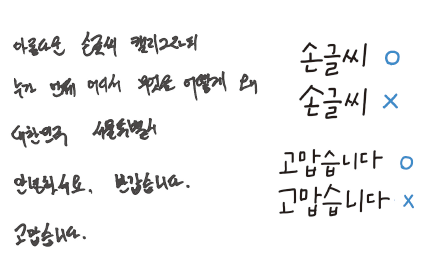 아름다운 손글씨 캘리그라피
누가 언제 어디서 무엇을 어떻게 왜
대한민국 서울특별시
안녕하세요. 반갑습니다.
고맙습니다.
손글씨 o
손글씨 x
고맙습니다 o
고맙습니다 x